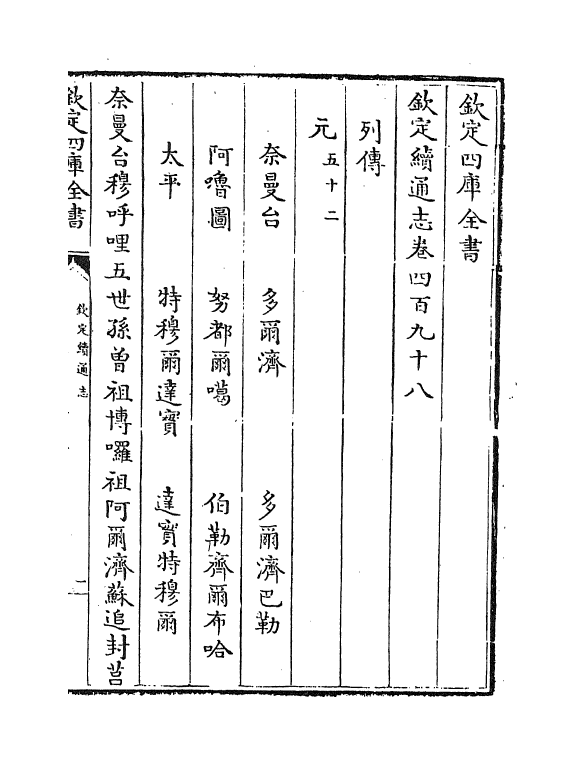 欽定四庫全書
欽定續通志卷四百九十八
列傳
元五十二
奈曼台 多爾濟 多爾濟巴勒
阿嚕圖 努都爾噶 伯勒齊爾布哈
太平 特穆爾達實 達實特穆爾
奈曼台穆呼哩五世孫曾祖博囉祖阿爾濟蘇追封莒
欽定四庫全書
欽定續通志